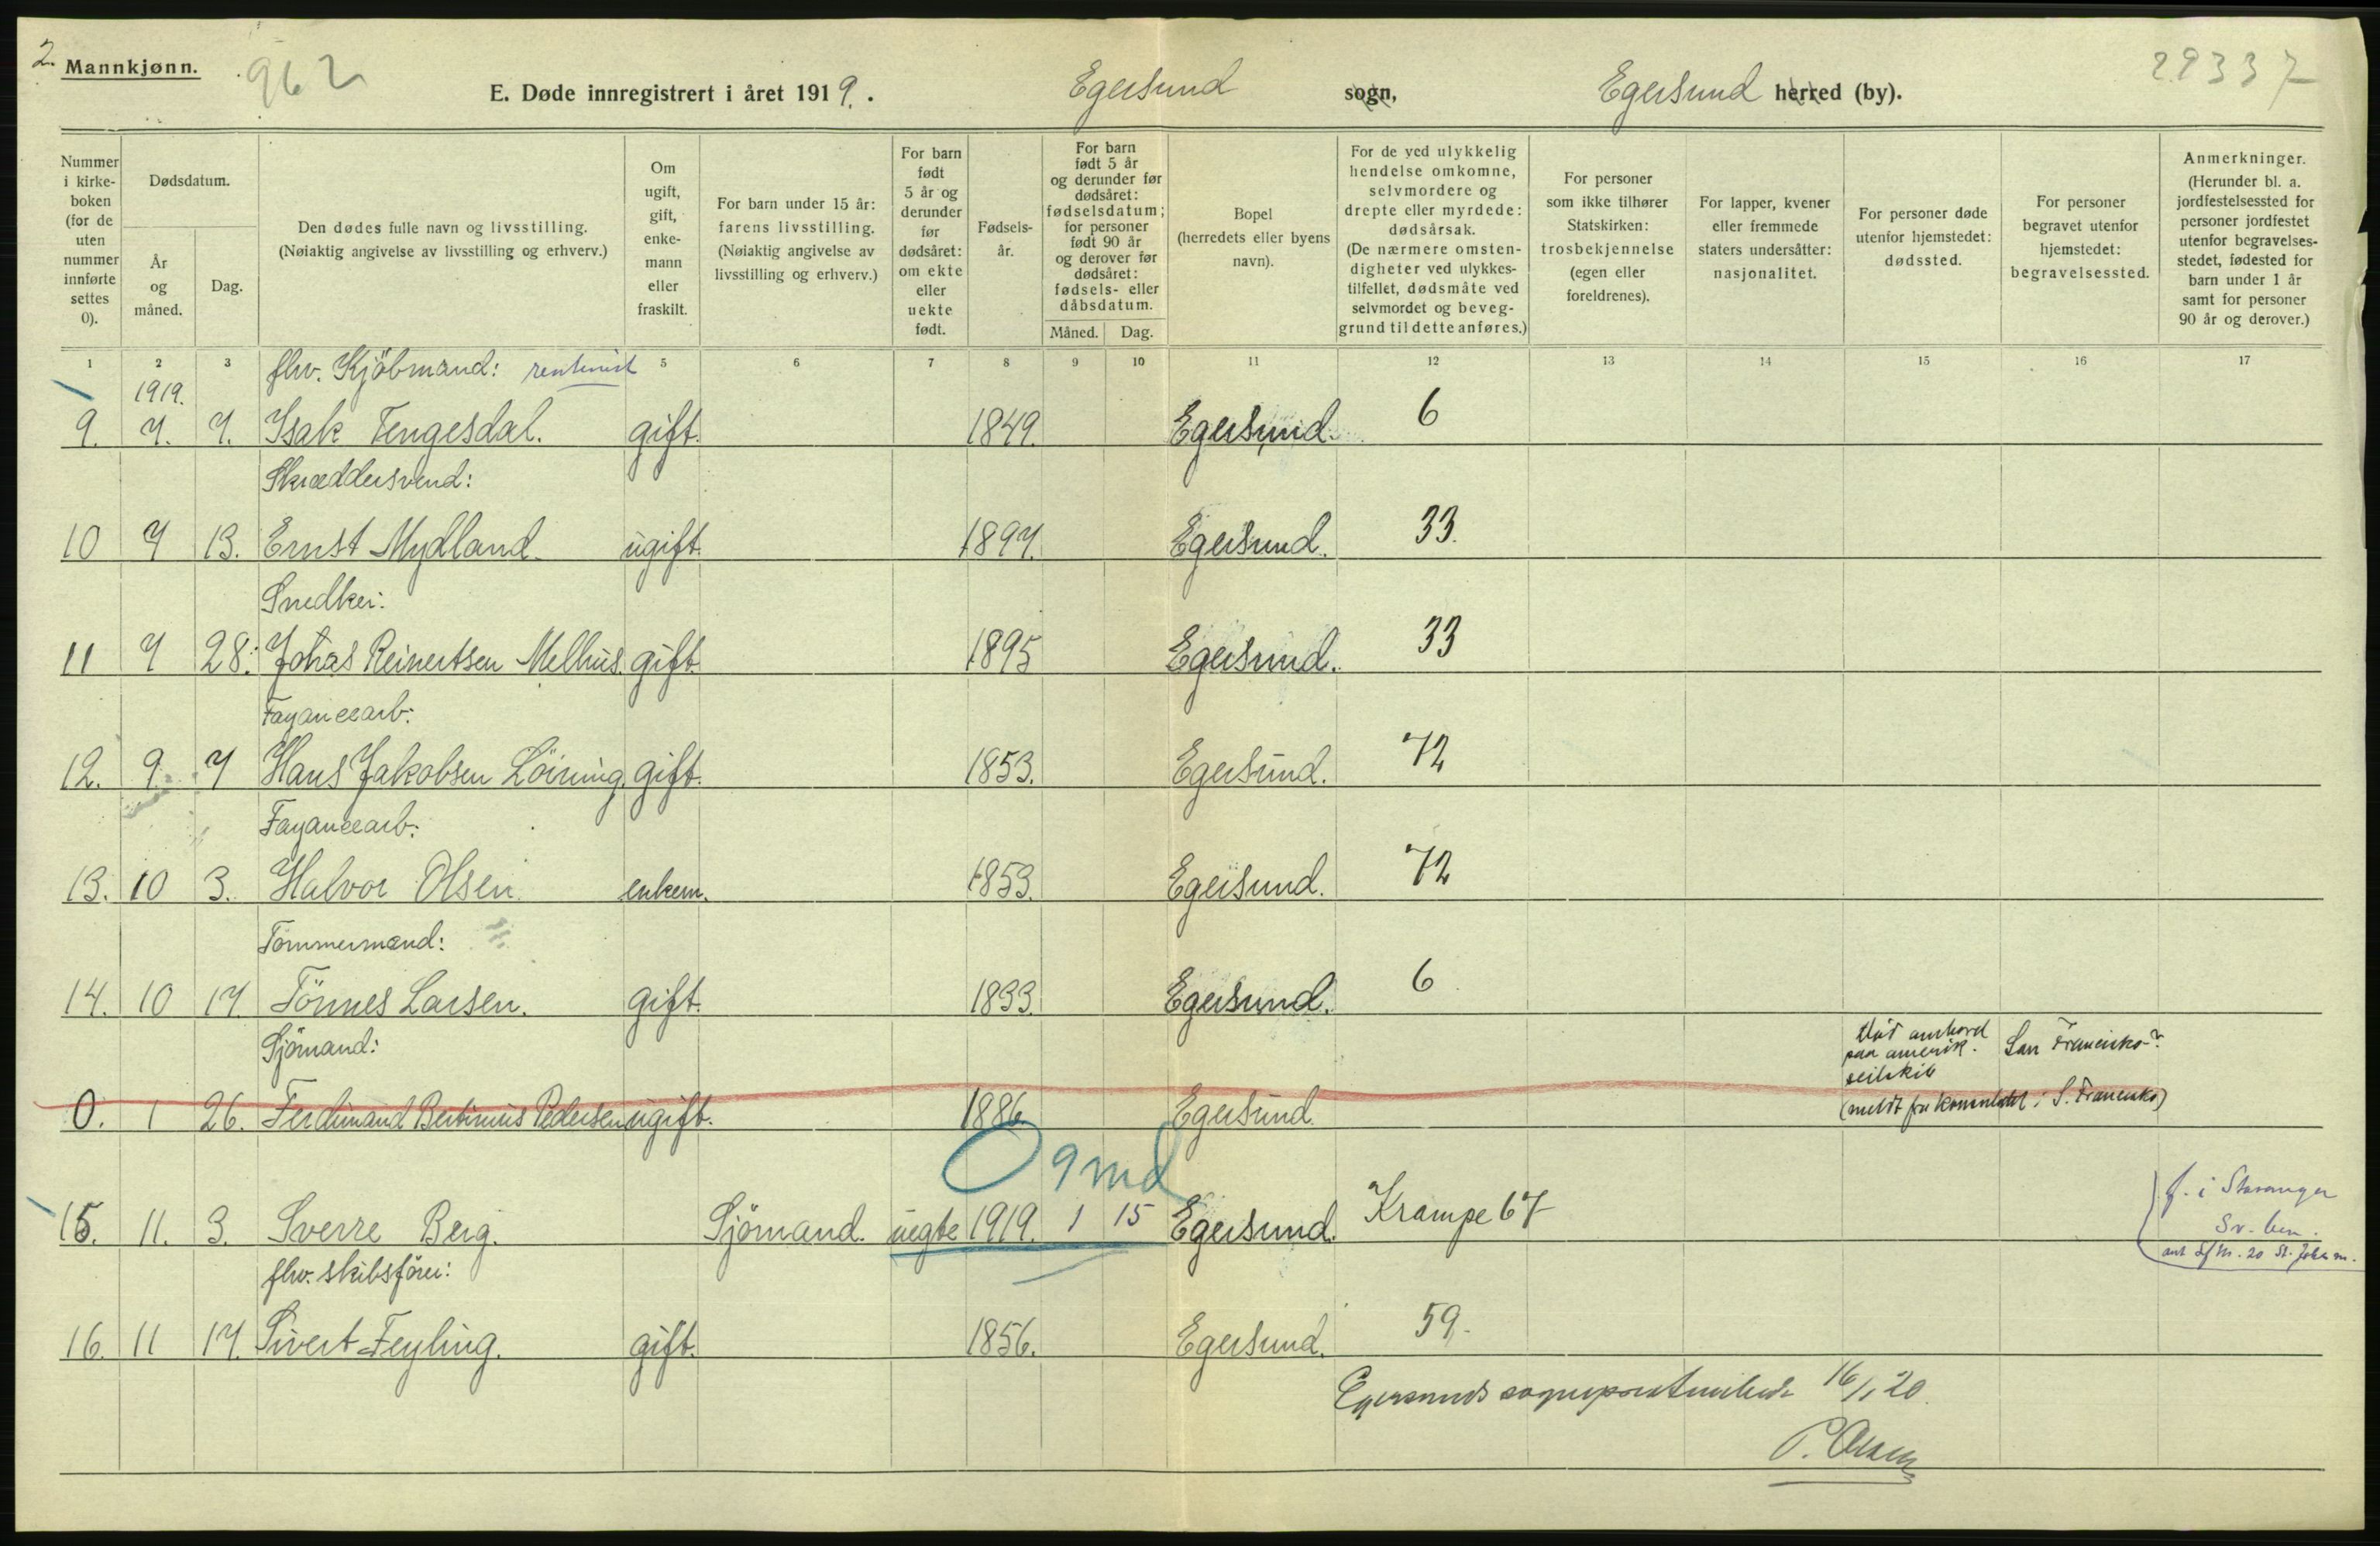 2. Mannkjønn. 962 29337
E. Døde innregistrert i året 1919. Egersund sogn, Egersund herred (by).
Nummer i kirkeboken (for de uten nummer innførte settes 0).
Dødsdatum.
År og måned.
Dag.
Den dødes fulle navn og livsstilling.
(Nøiaktig angivelse av livsstilling og erhverv.)
Om ugift, gift, enkemann eller fraskilt.
For barn under 15 år: farens livsstilling. (Nøiaktig angivelse av livsstilling og erhverv.)
For barn født 5 år og derunder før dødsåret: om ekte eller uekte født.
Fødselsår.
For barn født 5 år og derunder før dødsåret: fødselsdatum; for personer født 90 år og derover før dødsåret: fødsels- eller dåbsdatum.
Måned. Dag.
Bopel (herredets eller byens navn).
For de ved ulykkelig hendelse omkomne, selvmordere og drepte eller myrdede: dødsårsak. (De nærmere omstendigheter ved ulykkestilfellet, dødsmåte ved selvmordet og beveggrund til dette anføres.)
For personer som ikke tilhører Statskirken: trosbekjennelse (egen eller foreldrenes).
For lapper, kvener eller fremmede staters undersåtter: nasjonalitet.
For personer døde utenfor hjemstedet: dødssted.
For personer begravet utenfor hjemstedet: begravelsessted.
Anmerkninger. (Herunder bl. a. jordfestelsessted for personer jordfestet utenfor begravelsesstedet, fødested for barn under 1 år samt for personer 90 år og derover.)
1 2 3 5 6 7 8 9 10 11 12 13 14 15 16 17
1919. fhv. Kjöbmand: rentenist
9. 7. 7. Isak Tengesdal. gift. 1849. Egersund. 6
Skræddersvend:
10 7 13. Ernst Mydland. ugift. 1897. Egersund. 33.
Snedker:
11 7 28. Johas Reinertsen Melhus. gift. 1895 Egersund. 33
Fayancearb:
12. 9. 7 Hans Jakobsen Löining. gift. 1853. Egersund. 72
Fayancearb:
13. 10 3. Halvor Olsen enkem. 1853. Egersund. 72
Tömmermand:
14. 10 17. Tönnes Larsen. gift. 1833. Egersund. 6
Sjömand: död ombord paa amerik. seilskib San Francisko?
0. 1 26. Ferdinand Bertinius Pedersen ugift. 1886 Egersund. (meldt fra konsulatet i S. Francisko)
0 9 md
15. 11. 3. Sverre Berg. Sjömand. uegte 1919. 1 15 Egersund. Krampe 67 f. i Stavanger
fhv. skibsförer:
16. 11 17. Sivert Feyling. gift. 1856. Egersund. 59.
Egersunds sogneprestembede 16/1 20.